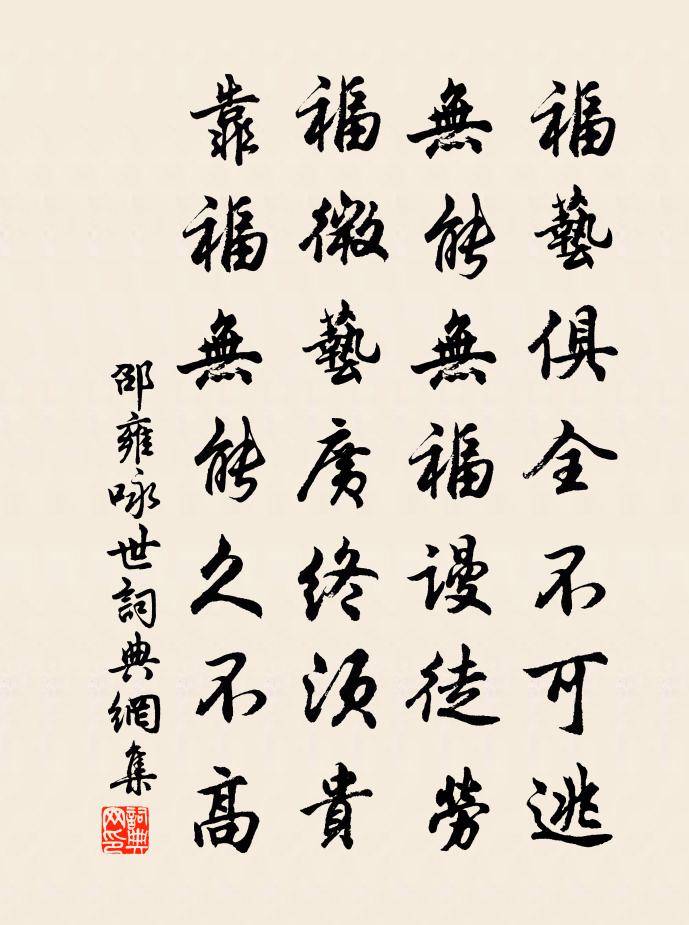 福藝俱全不可逃
無能無福謾徒勞
福微藝廣終須貴
靠福無能久不高
邵雍咏世詞典網集
詞典網印